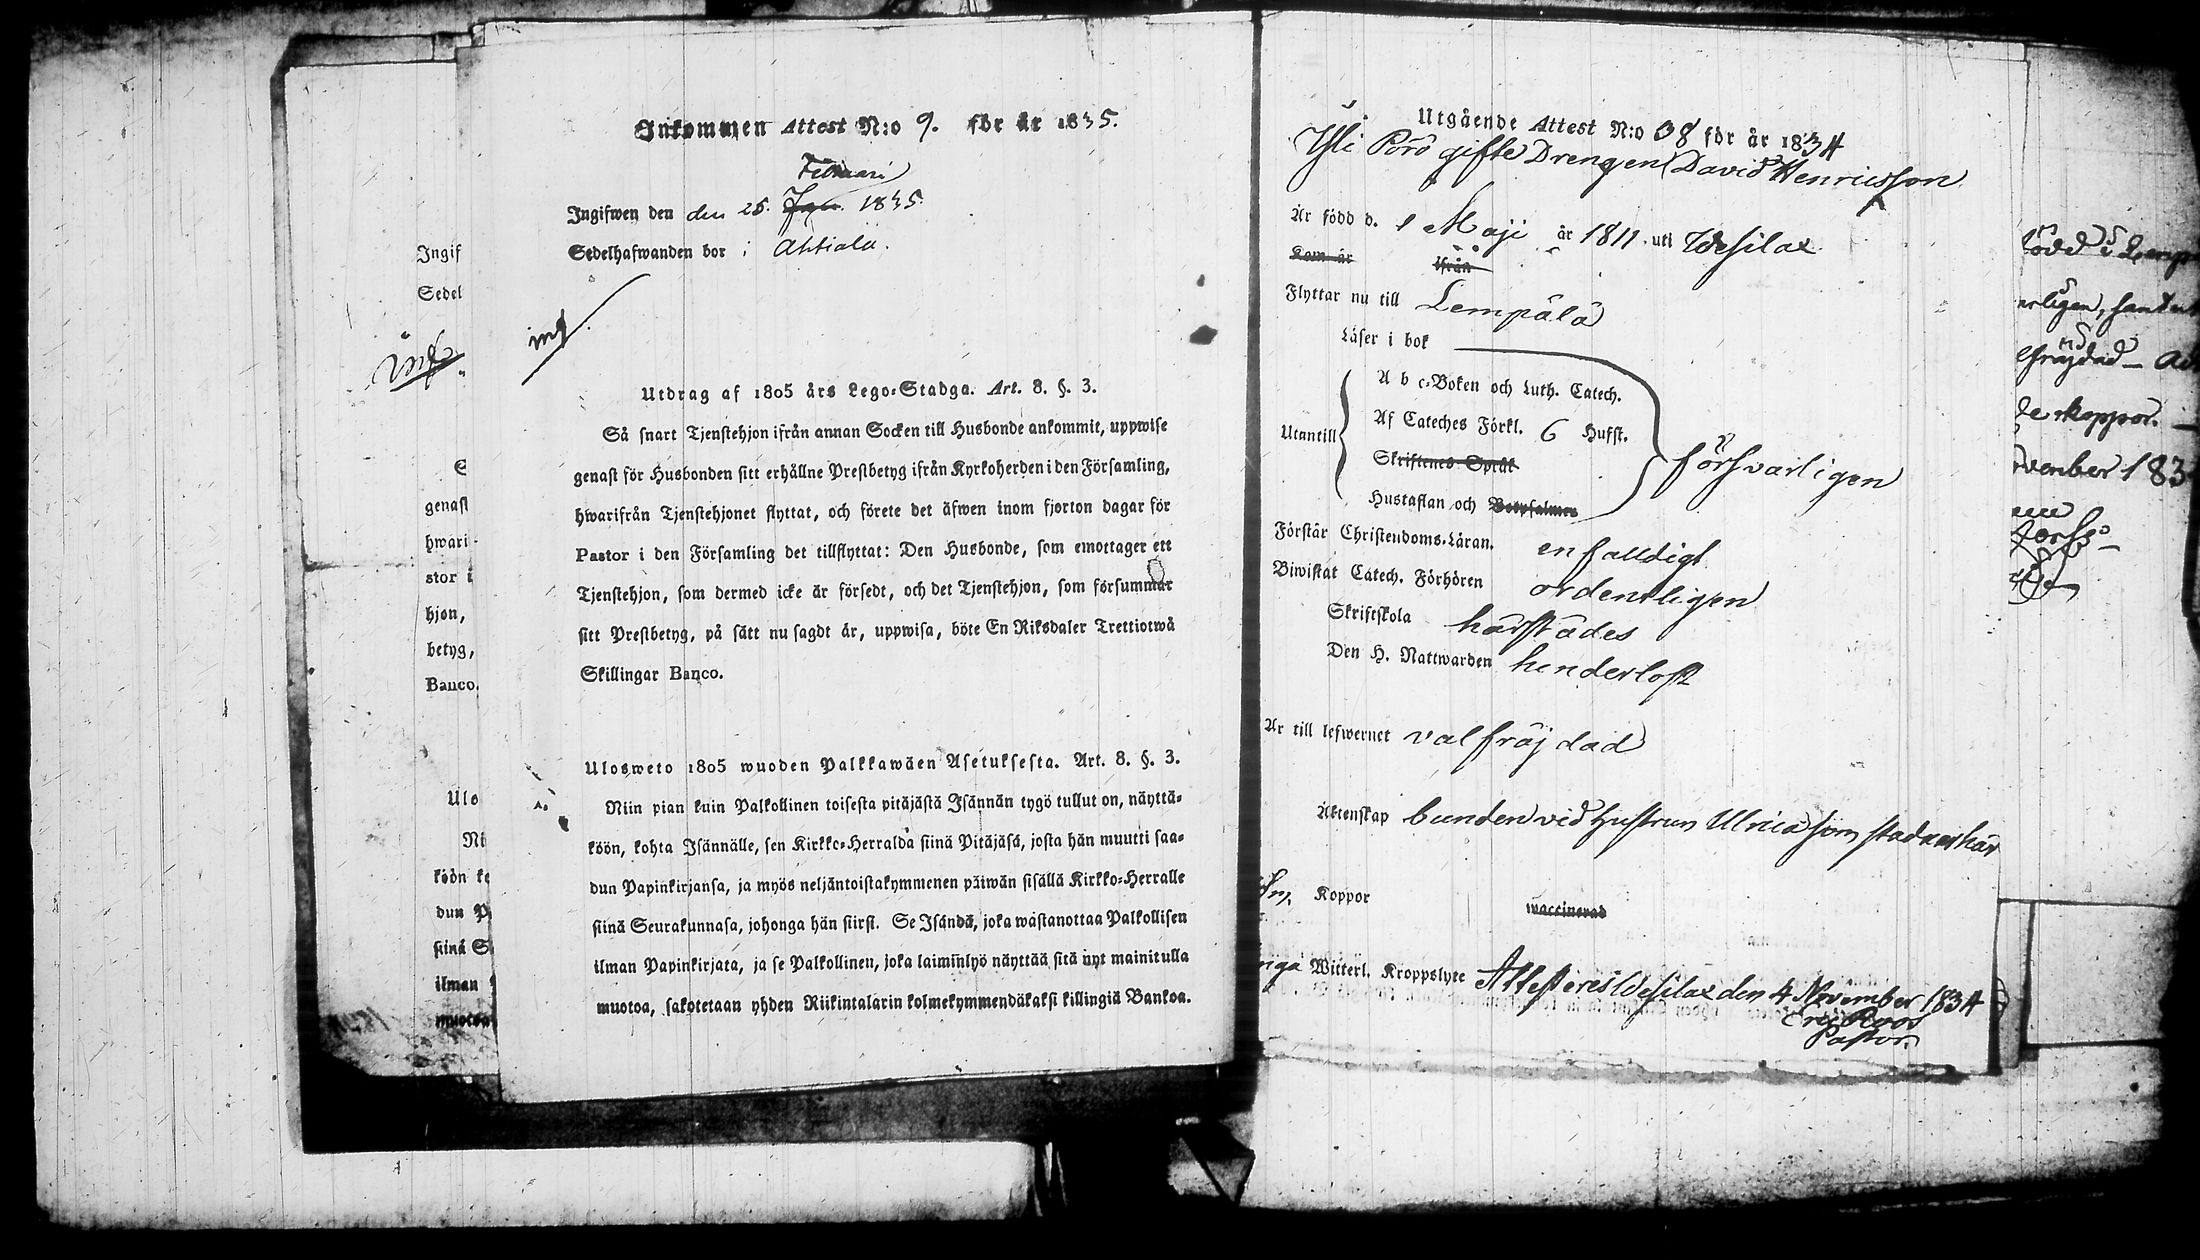 Inkommen Attest N:o 9. för år 1835.
Februari
Ingifwen den den 25. Jan. 1835.
Sedelhafwanden bor i Ahtiala.
inf.
Utdrag af 1805 års Lego=Stadga. Art. 8. §. 3.
Så snart Tjenstehjon ifrån annan Socken till Husbonde ankommit, uppwise
genast för Husbonden sitt erhållne Prestbetyg ifrån Kyrkoherden i den Församling,
hwarifrån Tjenstehjonet flyttat, och förete det äfwen inom fjorton dagar för
Pastor i den Församling det tillflyttat: Den Husbonde, som emottager ett
Tjenstehjon, som dermed icke är försedt, och det Tjenstehjon, som försummar
sitt Prestbetyg, på sätt nu sagdt är, uppwisa, böte En Riksdaler Trettiotwå
Skillingar Banco.
Ulosweto 1805 wuoden Palkkawäen Asetuksesta. Art. 8. §. 3.
Niin pian kuin Palkollinen toisesta pitäjästä Isännän tygö tullut on, näyttä=
köön, kohta Isännälle, sen Kirkko=Herralda siinä Pitäjäsä, josta hän muutti saa=
dun Papinkirjansa, ja myös neljäntoistakymmenen päiwän sisällä Kirkko=Herralle
siinä Seurakunnasa, johonga hän siirsi. Se Isändä, joka wastanottaa Palkollisen
ilman Papinkirjata, ja se Palkollinen, joka laiminlyö näyttää sitä nyt mainitulla
muotoa, sakotetaan yhden Riikintalarin kolmekymmendäkaksi killingiä Bankoa.
Ingif
Sedel
inf.
genast
hwari=
stor i
hjon,
betyg,
Banco.
Ulo
Ni
köön ko
dun P
siinä S
ilman
muotoa
Utgående Attest N:o 38 för år 1834
Yli Pörö gifte Drengen David Henricsson
Är född d. 1 Maji år 1811 uti Wesilax
Kom år ifrån
Flyttar nu till Lempälä
Läser i bok
A b c=Boken och Luth. Catech.
Utantill Af Cateches Förkl. 6 Hufst.
försvarligen
Skriftenes Språk
Hustaflan och Botpsalmer
Förstår Christendoms=Läran. enfalldigt
Biwistat Catech. Förhören ordentligen
Skriftskola härstädes
Den H. Nattwarden hinderlöst
Är till lefwernet välfräjdad
Äktenskap bunden vid Hustrun Ulrica som stadnar här
Koppor
waccinerad
nga Witterl. Kroppslyte Attesteres Wesilax den 4 November 1834
Roos
Pastor.
född i Lempä
erligen, samt
fräjdad
koppor.
vember 183